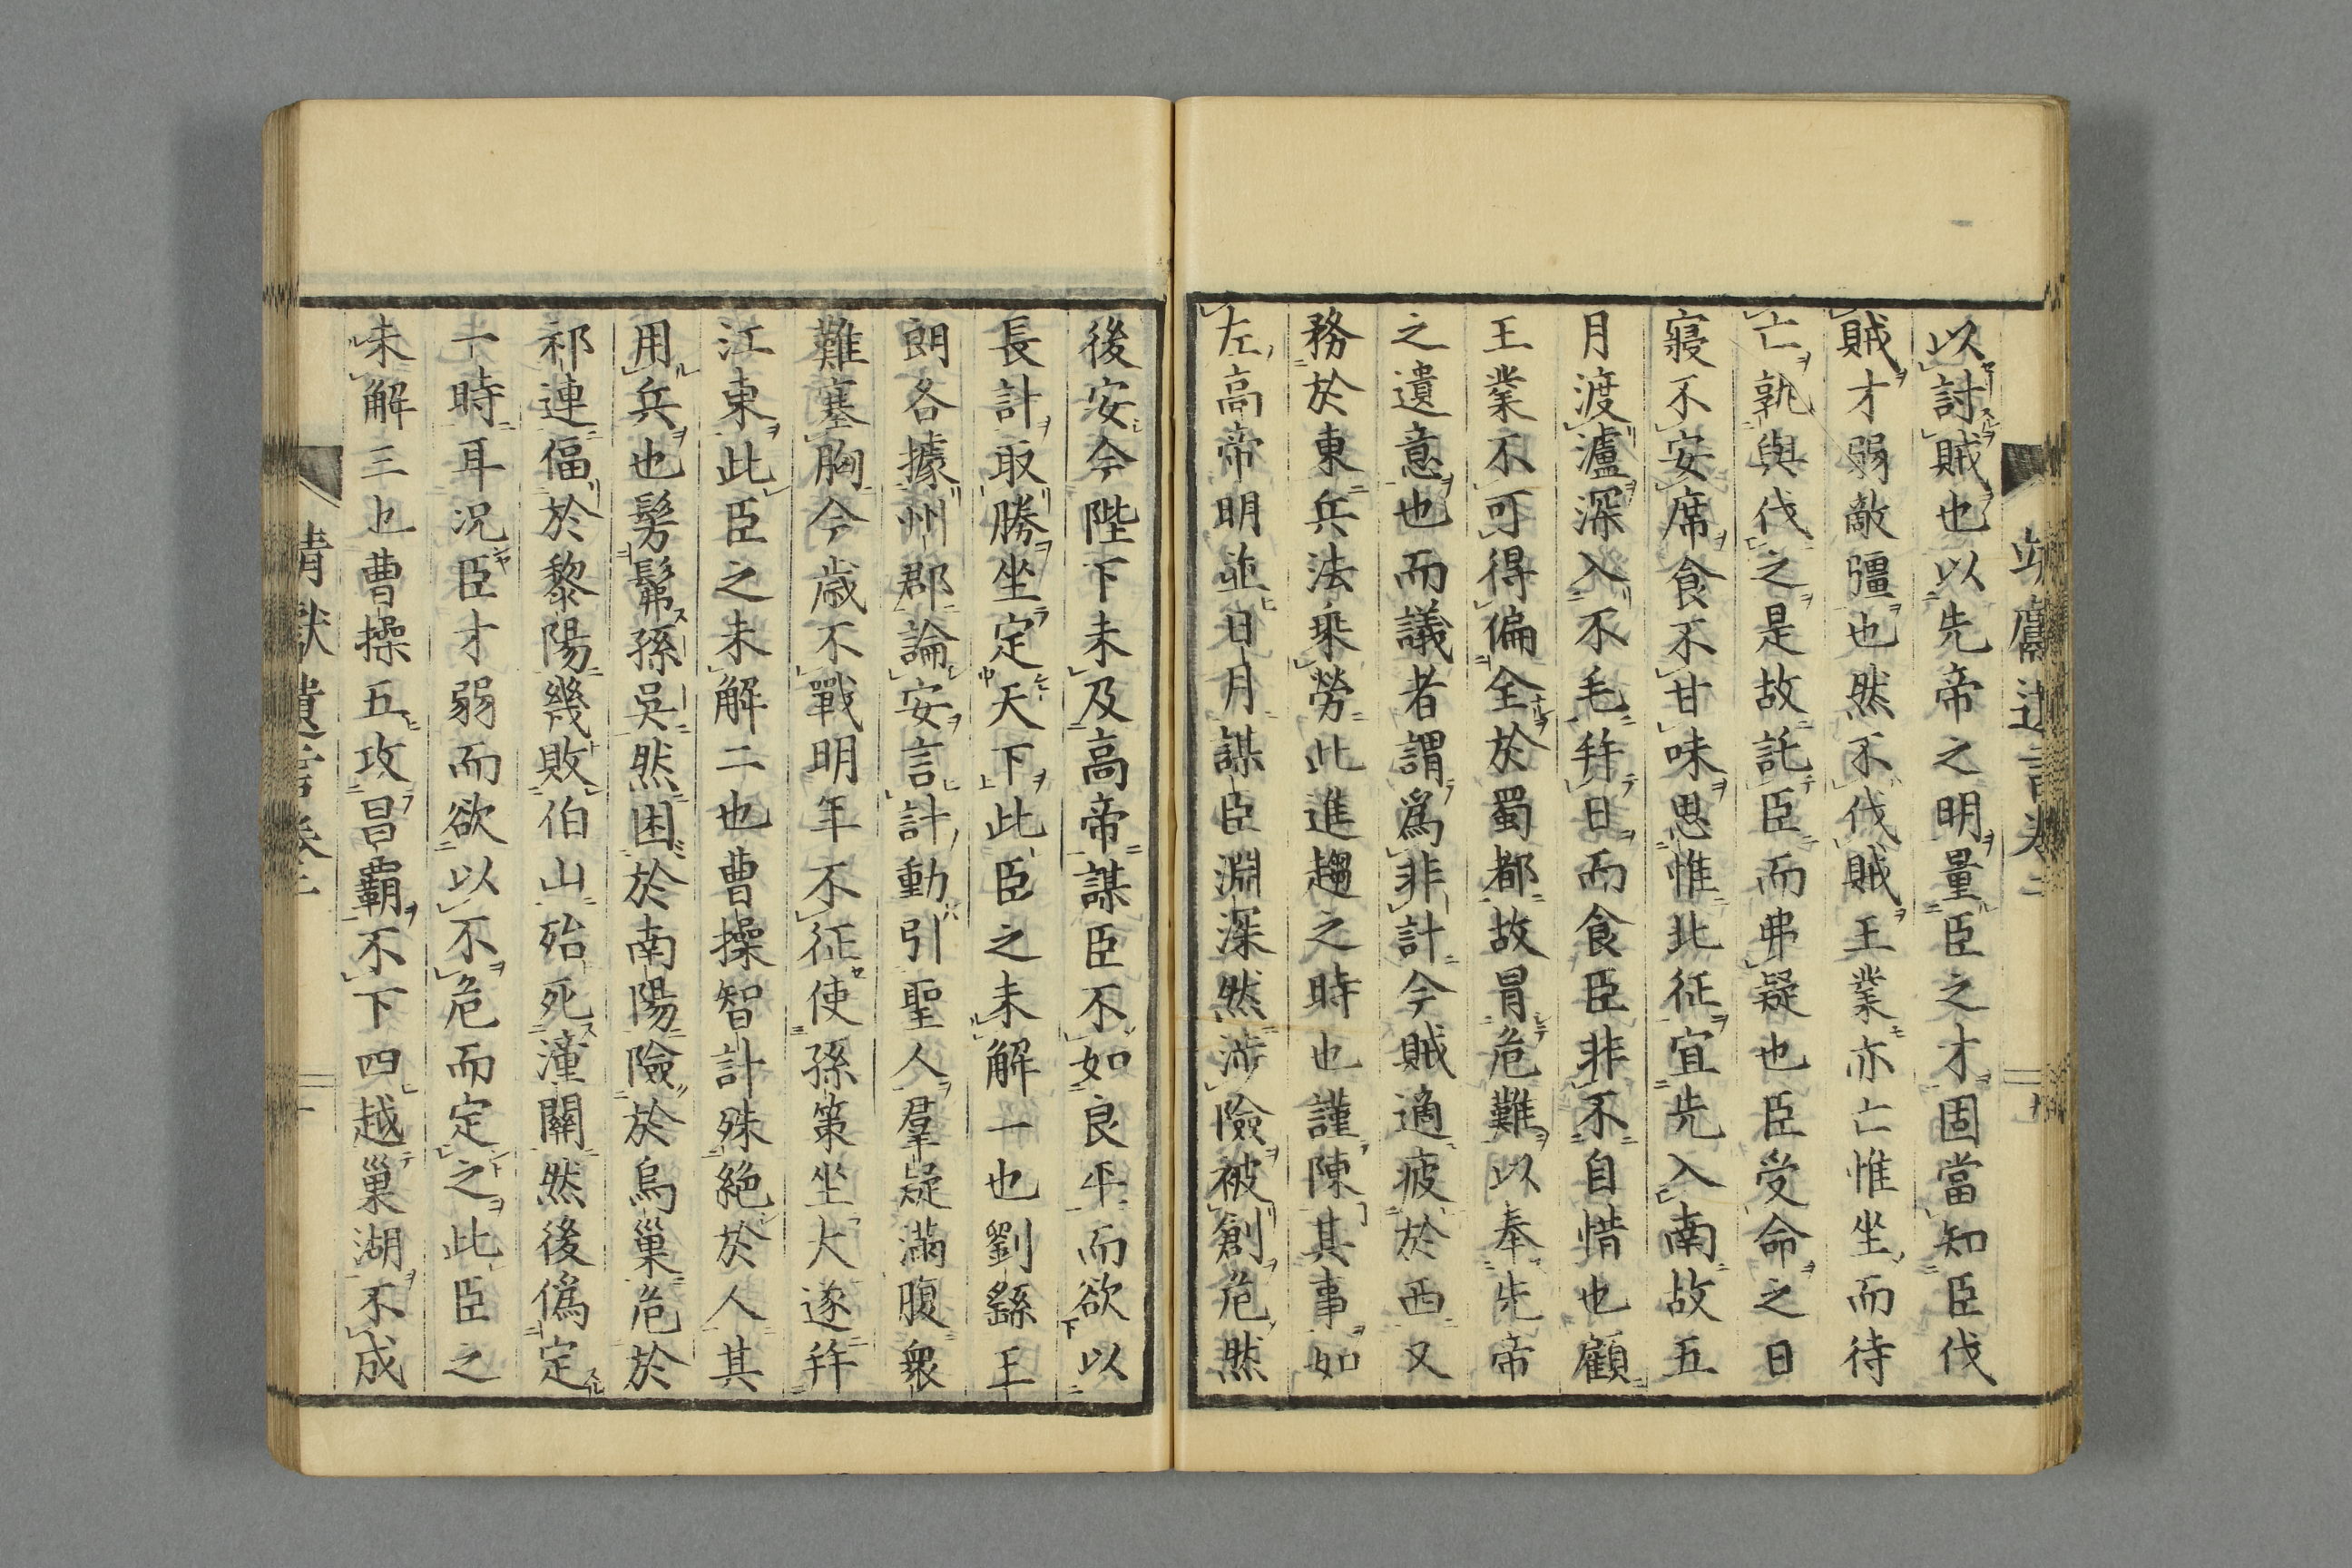 以討賊也以先帝之明量臣之才固當知臣伐
賊才弱敵彊也然不伐賊王業亦亡惟坐而待
亡孰與伐之是故託臣而弗疑也臣受命之日
寢不安席食不甘味思惟北征宜先入南故五
月渡瀘深入不毛幷日而食臣非不自惜也顧
王業不可得偏全於蜀都故冒危難以奉先帝
之遺意也而議者謂爲非計今賊適疲於西又
務於東兵法乘勞此進趨之時也謹陳其事如
左高帝明並日月謀臣淵深然涉險被創危然
後安今陛下未及高帝謀臣不如良平而欲以
長計取勝坐定天下此臣之未解一也劉繇王
朗各據州郡論安言計動引聖人羣疑滿腹衆
難塞胸今歲不戰明年不征使孫策坐大遂幷
江東此臣之未解二也曹操智計殊絕於人其
用兵也髣髴孫吳然困於南陽險於烏巢危於
祁連偪於黎陽幾敗伯山殆死潼關然後僞定
一時耳況臣才弱而欲以不危而定之此臣之
未解三也曹操五攻昌霸不下四越巢湖不成
靖獻遺言卷二